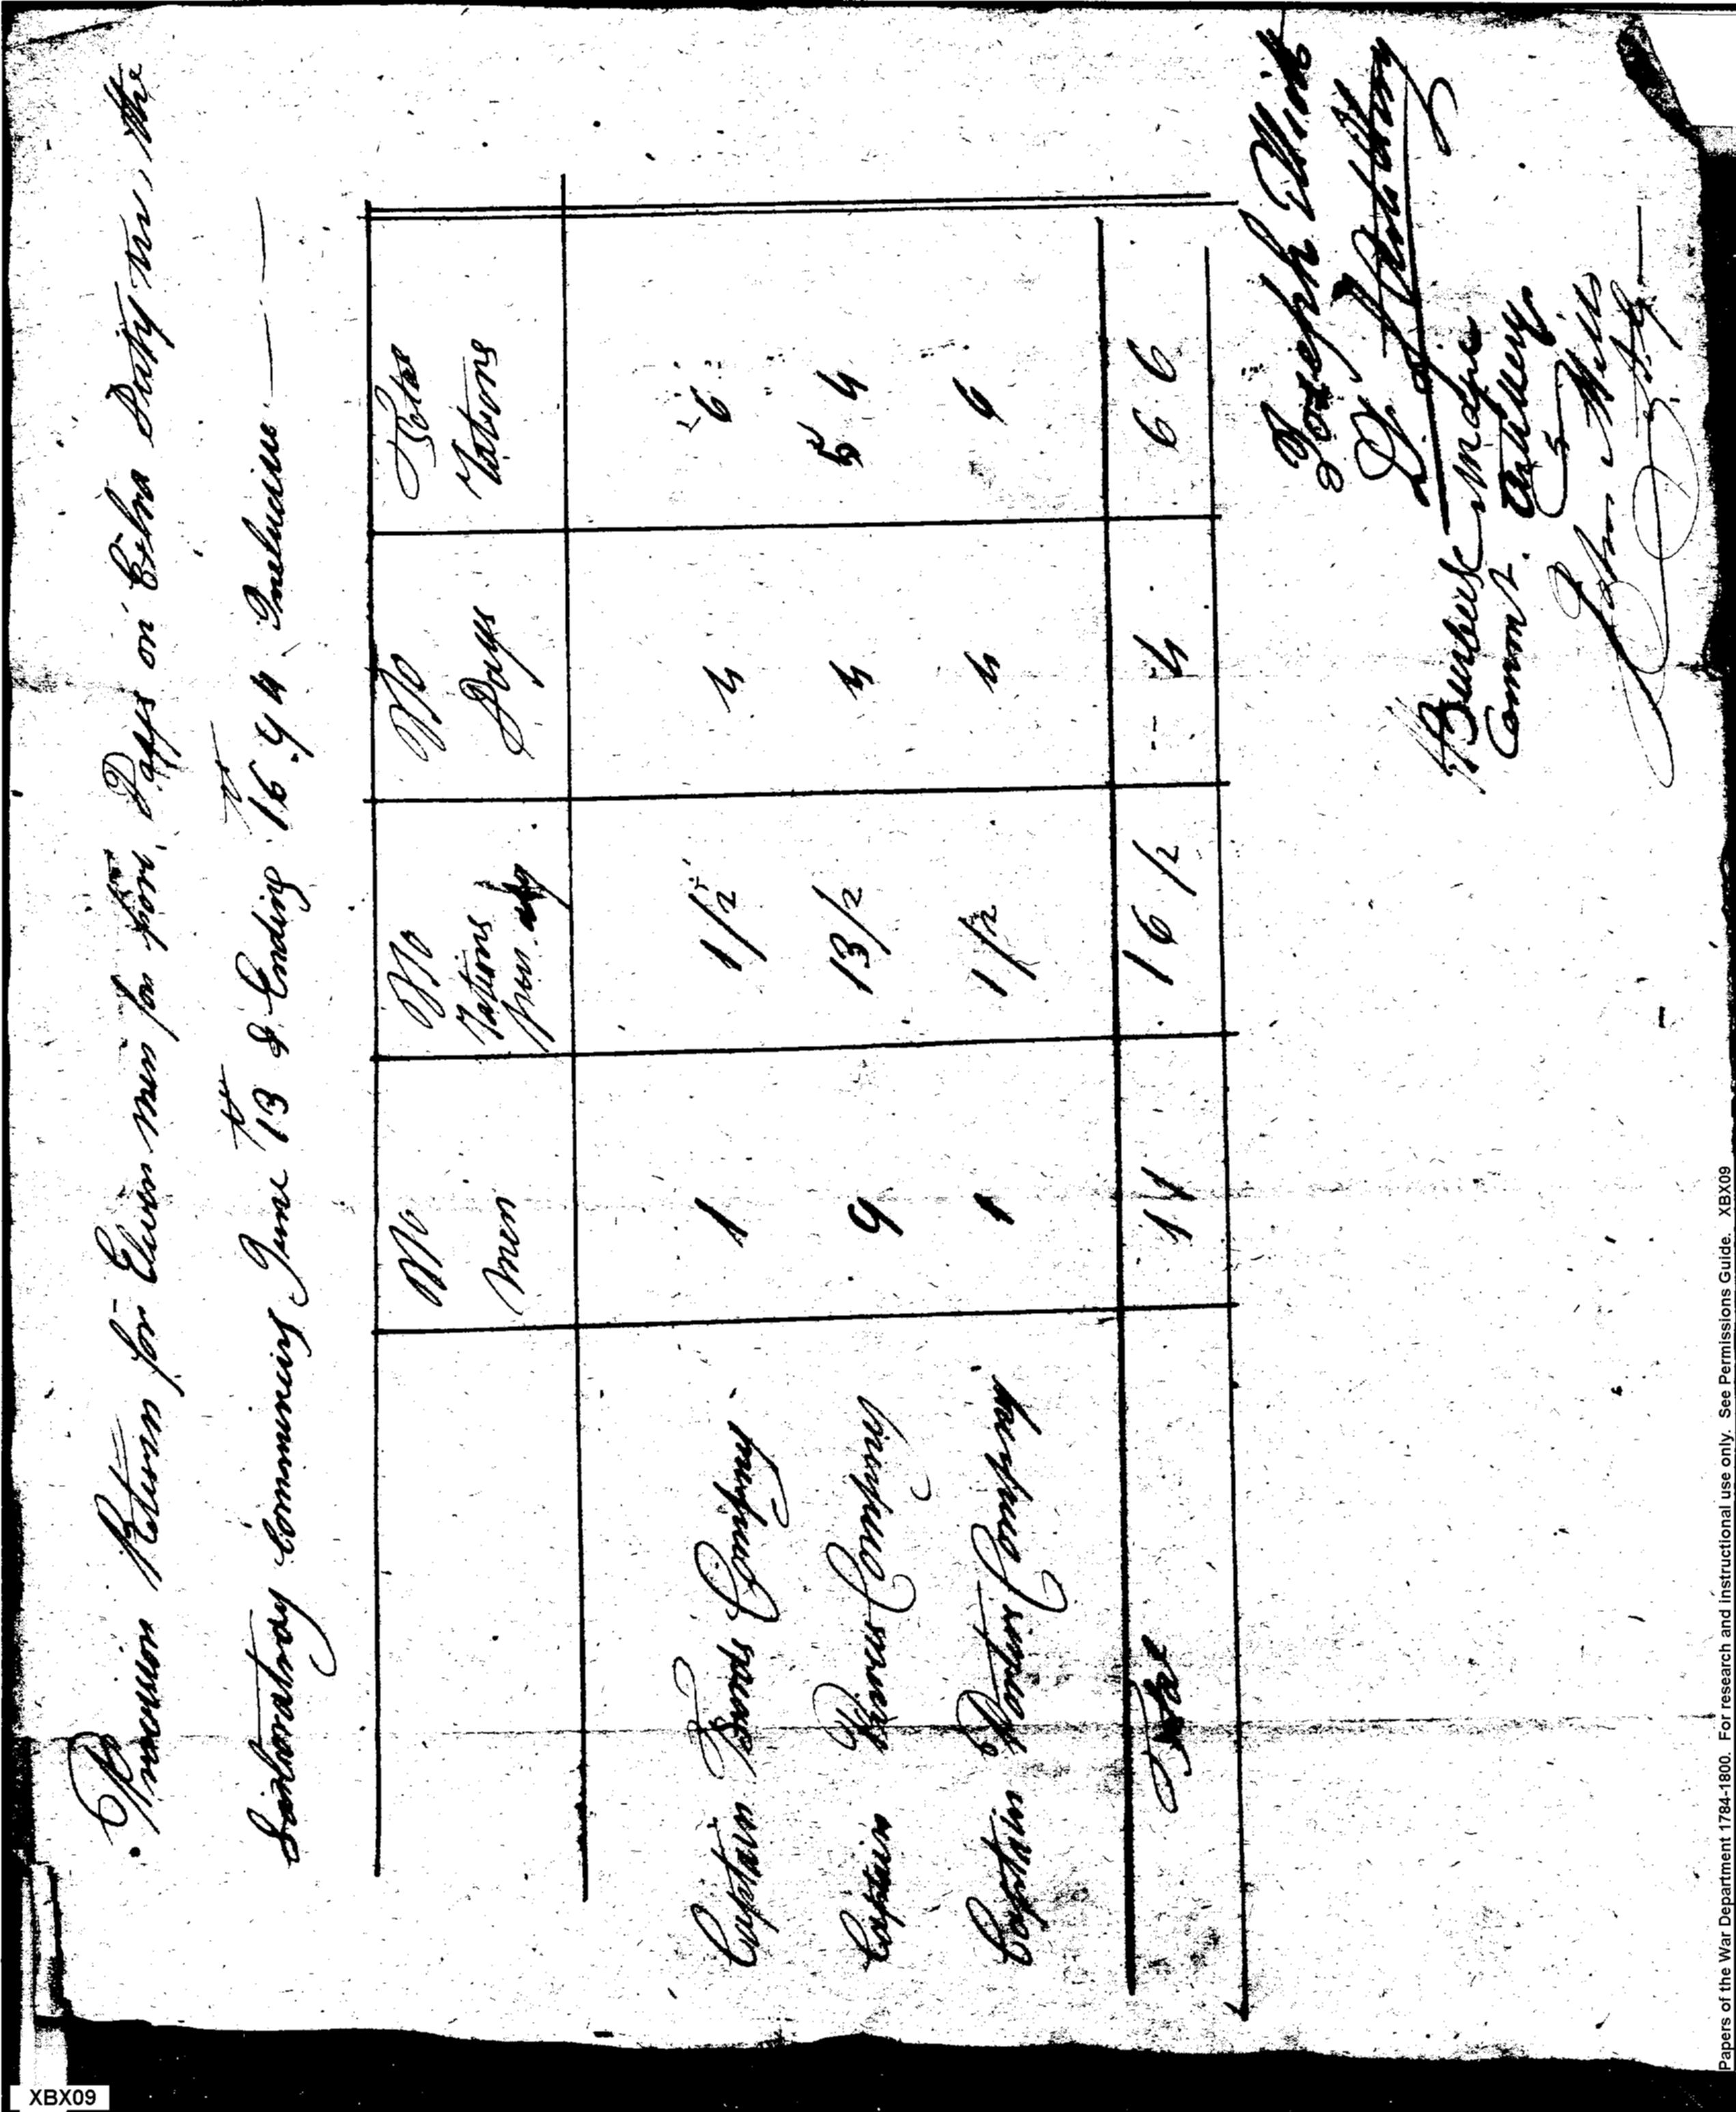 Provision Return for Eleven men for four Days on Extra Duty in the
Laboratory Commencing June 13th & Ending 16th 94 Inclusive
No Men | No rations per day | No Days | Total rations
Captain Company 1 1/2 4 6
Captain Company 9 13/2 4 54
Captain Company 1 1/2 4 6
Total 11 16/2 4 66
Joseph Elliott
Lt
Burbeck Major
Commt. Artillery
John Mills
XBX09
Papers of the War Department 1784-1800. For research and instructional use only. See Permissions Guide. XBX09